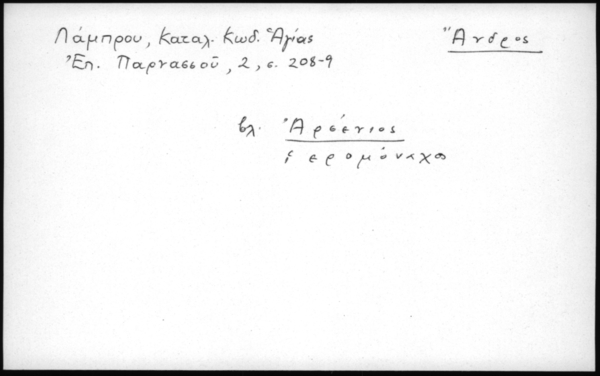 Λάμπρου, Καταλ. Κωδ. Ἁγίας
Ἐπ. Παρνασσοῦ, 2, σ. 208-9
Ἄνδρος
βλ. Ἀρσένιος
ἱερομόναχος